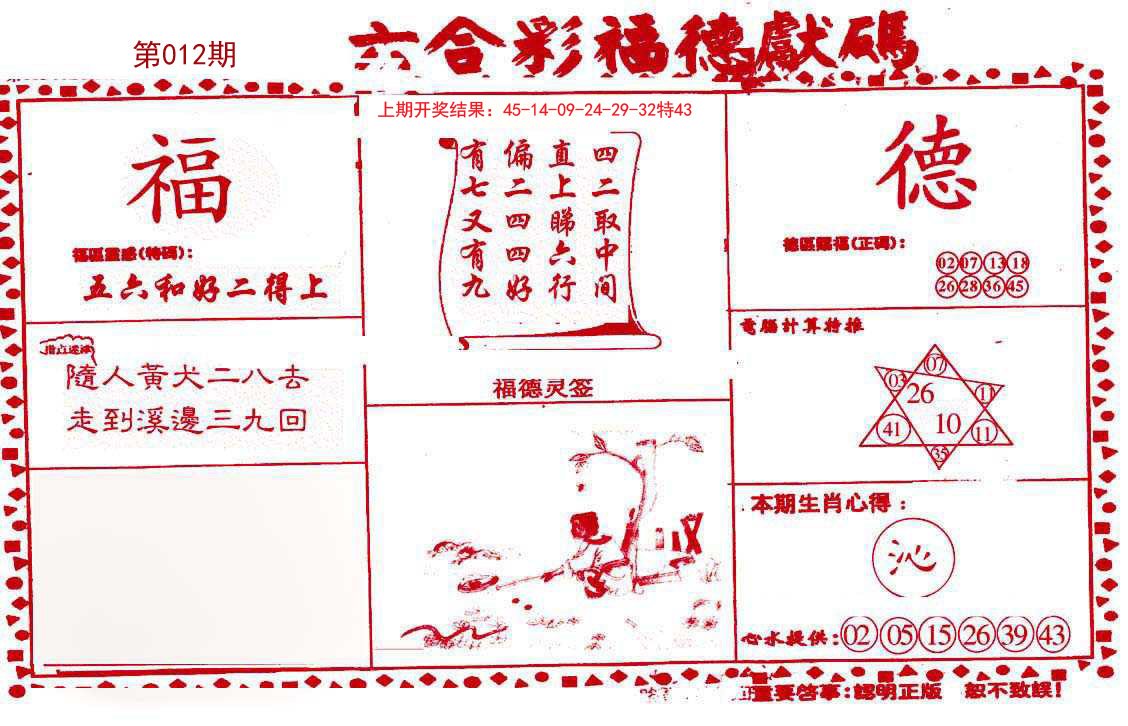 第012期
六合彩福德獻碼
福
福區靈感(特碼):
五六和好二得上
隨人黃犬二八去
走到溪邊三九回
上期开奖结果：45-14-09-24-29-32特43
四二取中间
直上睇六行
偏二四四好
有七又有九
福德灵签
德
德區賜福(正碼):
02 07 13 18
26 28 36 45
電腦計算特推
07
03 26 11
41 10 11
35
本期生肖心得：
沁
心水提供:02 05 15 26 39 43
重要啓事:認明正版 恕不致誤!